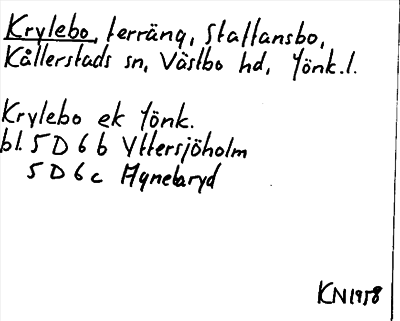 Krylebo, terräng, Staffansbo,
Kållerstads sn, Västbo hd, Jönk.l.
Krylebo ek Jönk.
bl. 5 D 6 b Yttersjöholm
5 D 6 c Hynebaryd
KN 1958